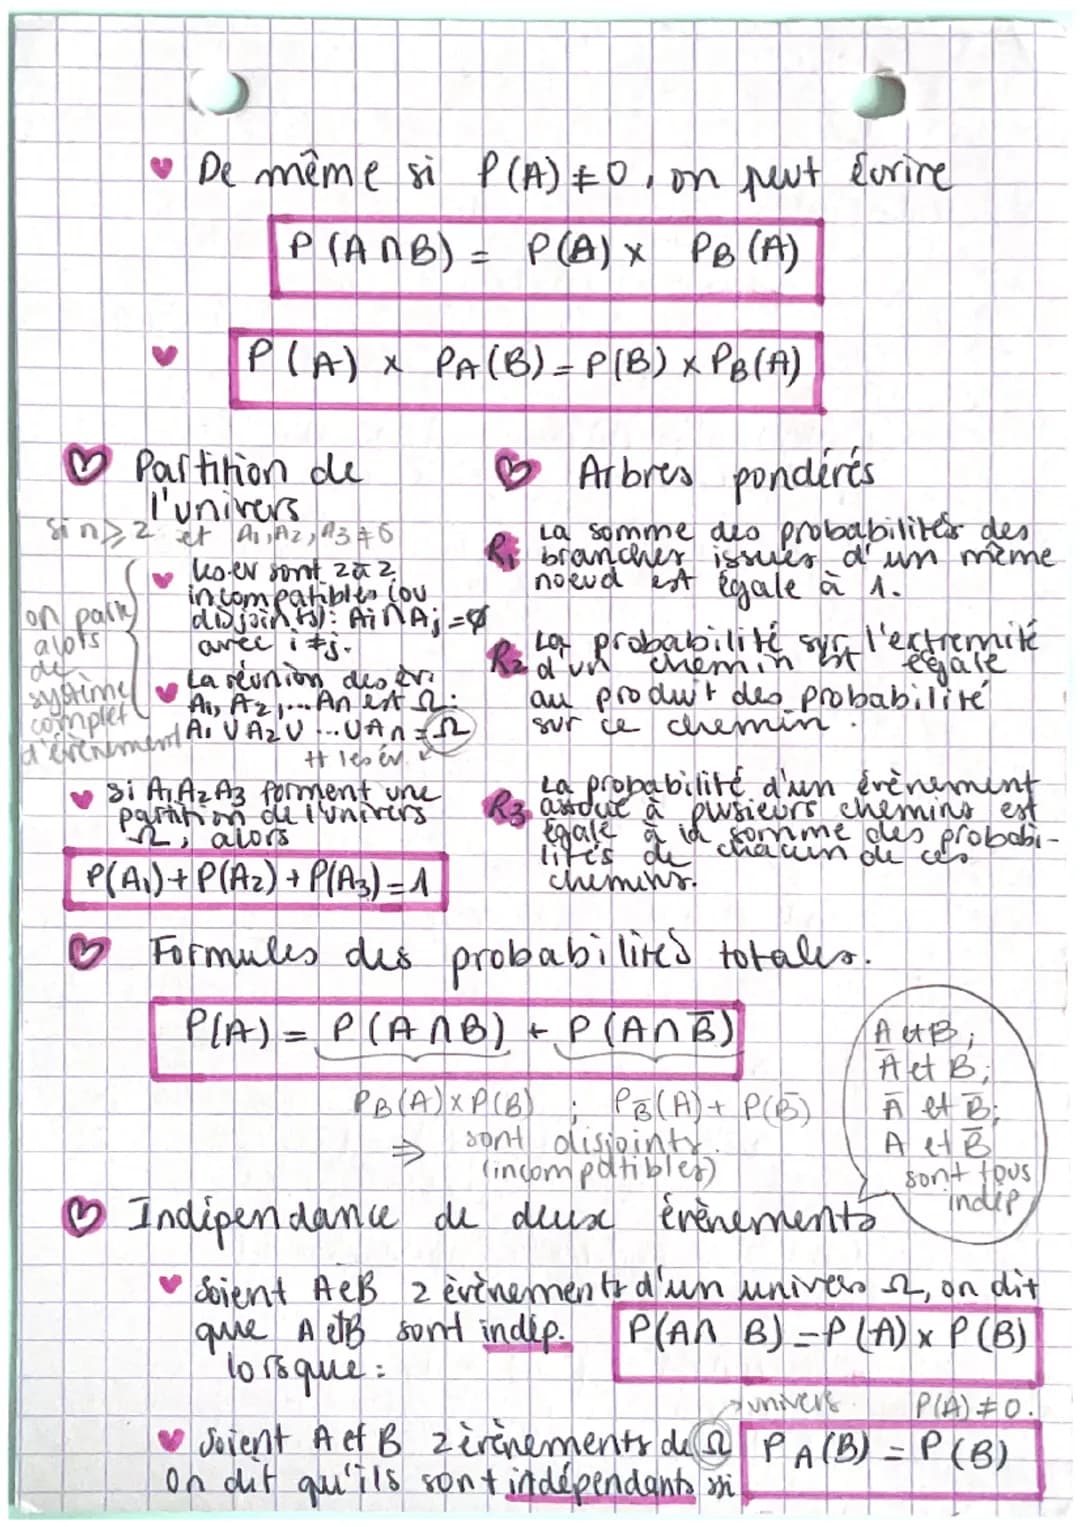 De même si P(A) ≠ 0, on peut écrire
P(A∩B) = P(A) × PB(A)
P(A) × PA(B) = P(B) × PB(A)
Partition de
l'univers
Si n ≥ 2 et A1, A2, A3 ≠ 0
les ev sont 2 à 2
incompatibles (ou
disjoints) : Ai∩Aj = ∅
avec i ≠ j.
La réunion des èv.
A1, A2, ... An est Ω :
A1 ∪ A2 ∪ ... ∪ An = Ω
tt les èv.
on parle
alors
de
système
complet
d'évènement
si A1A2A3 forment une
partition de l'univers
Ω, alors
P(A1) + P(A2) + P(A3) = 1
Arbres pondérés
R1 La somme des probabilités des
branches issues d'un même
noeud est égale à 1.
R2 La probabilité sur l'extremité
d'un chemin est égale
au produit des probabilité
sur ce chemin.
R3 La probabilité d'un évènement
associé à plusieurs chemins est
égale à la somme des probabi-
lités de chacun de ces
chemins.
Formules des probabilités totales.
P(A) = P(A∩B) + P(A∩B̅)
PB(A) × P(B) ; PB̅(A) + P(B̅)
⇒ sont disjoints.
(incompatibles)
A et B ;
A̅ et B ;
A̅ et B̅ ;
A et B̅
sont tous
indep
Indépendance de deux évènements
Soient A et B 2 évènements d'un univers Ω, on dit
que A et B sont indép.
lorsque :
P(A∩B) = P(A) × P(B)
→ univers
P(A) ≠ 0.
Soient A et B 2 évènements de Ω
On dit qu'ils sont indépendants si
PA(B) = P(B)